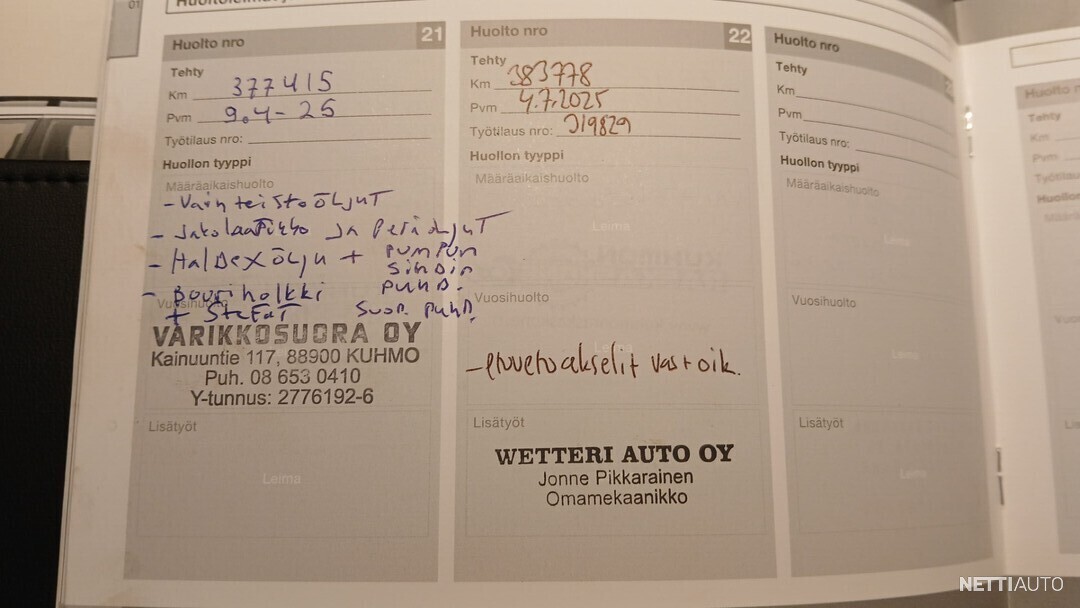 01
21
Huolto nro
Tehty
Km 377415
Pvm 9.4-25
Työtilaus nro:
Huollon tyyppi
Määräaikaishuolto
- Vaihteistoöljyt
- Jakolaatikko ja Peräöljyt
- Haldex öljy + Pumpun
sihdin
PUHD.
- Bouriholkki
Vuosihuolto
+ Suod. PUHD.
VARIKKOSUORA OY
Kainuuntie 117, 88900 KUHMO
Puh. 08 653 0410
Y-tunnus: 2776192-6
Lisätyöt
Leima
22
Huolto nro
Tehty
Km 383778
Pvm 4.7.2025
Työtilaus nro: 319829
Huollon tyyppi
Määräaikaishuolto
Leima
Vuosihuolto
- etuvetoakselit vas + oik.
Lisätyöt
WETTERI AUTO OY
Jonne Pikkarainen
Omamekaanikko
Huolto nro
Tehty
Km
Pvm
Työtilaus nro:
Huollon tyyppi
Määräaikaishuolto
Leima
Vuosihuolto
Leima
Lisätyöt
Leima
Huolto n
Tehty
Km
Pvm
NETTIAUTO